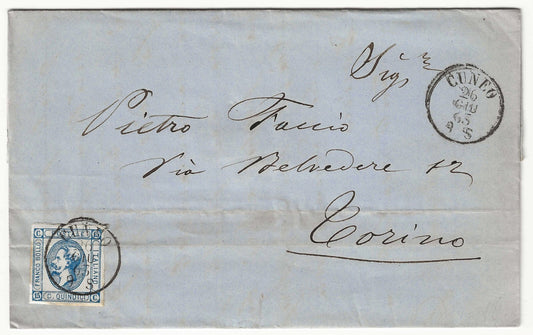 Sigr
CUNEO
26
GIU
65
9 S
Pietro Faccio
Via Belvedere 12
Torino
CUNEO
FRANCO BOLLO
ITALIANO
C. QUINDICI
C
C
15
C